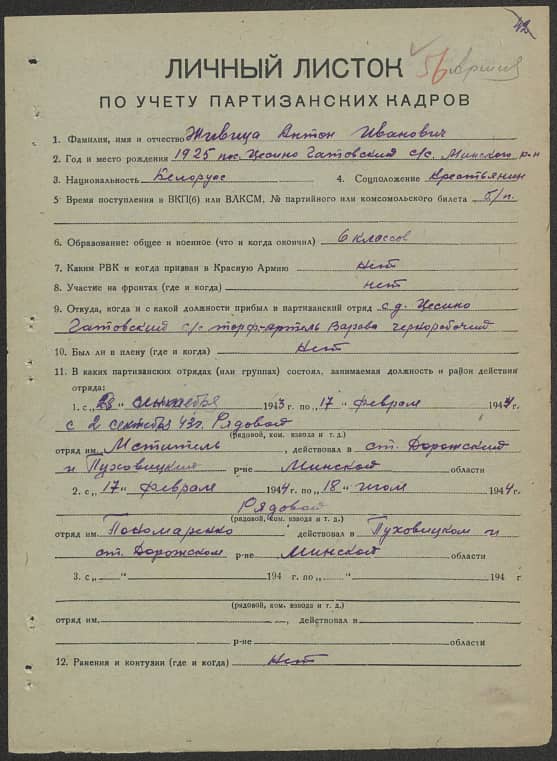 42
ЛИЧНЫЙ ЛИСТОК
ПО УЧЕТУ ПАРТИЗАНСКИХ КАДРОВ
1. Фамилия, имя и отчество Живица Антон Иванович
2. Год и место рождения 1925 пос. Цесино Гатовский с/с. Минского р-н
3. Национальность Белорус 4. Соцположение Крестьянин
5 Время поступления в ВКП(б) или ВЛКСМ, № партийного или комсомольского билета б/п.
6. Образование: общее и военное (что и когда окончил) 6 классов
7. Каким РВК и когда призван в Красную Армию Нет
8. Участие на фронтах (где и когда) нет
9. Откуда, когда и с какой должности прибыл в партизанский отряд с д. Цесино
Гатовский с/с торф-артель чернорабочий
10. Был ли в плену (где и когда) Нет
11. В каких партизанских отрядах (или группах) состоял, занимаемая должность и район действия
отряда:
1. с „ “ 1943 г. по „17“ февраля 1944 г.
с 2 сентября 43 г. Рядовой
(рядовой, ком. взвода и т. д.)
отряд им. Мститель, действовал в ст. Дорожский
и Пуховицкий р-не Минской области
2. с „17“ февраля 1944 г. по „18“ июля 1944 г.
Рядовой
(рядовой, ком. взвода и т. д.)
отряд им. Пономаренко действовал в Пуховицком и
ст. Дорожском р-не Минской области
3. с „ “ 194 г. по „ “ 194 г
(рядовой, ком. взвода и т. д.)
отряд им. , действовал в
р-не области
12. Ранения и контузии (где и когда) Нет